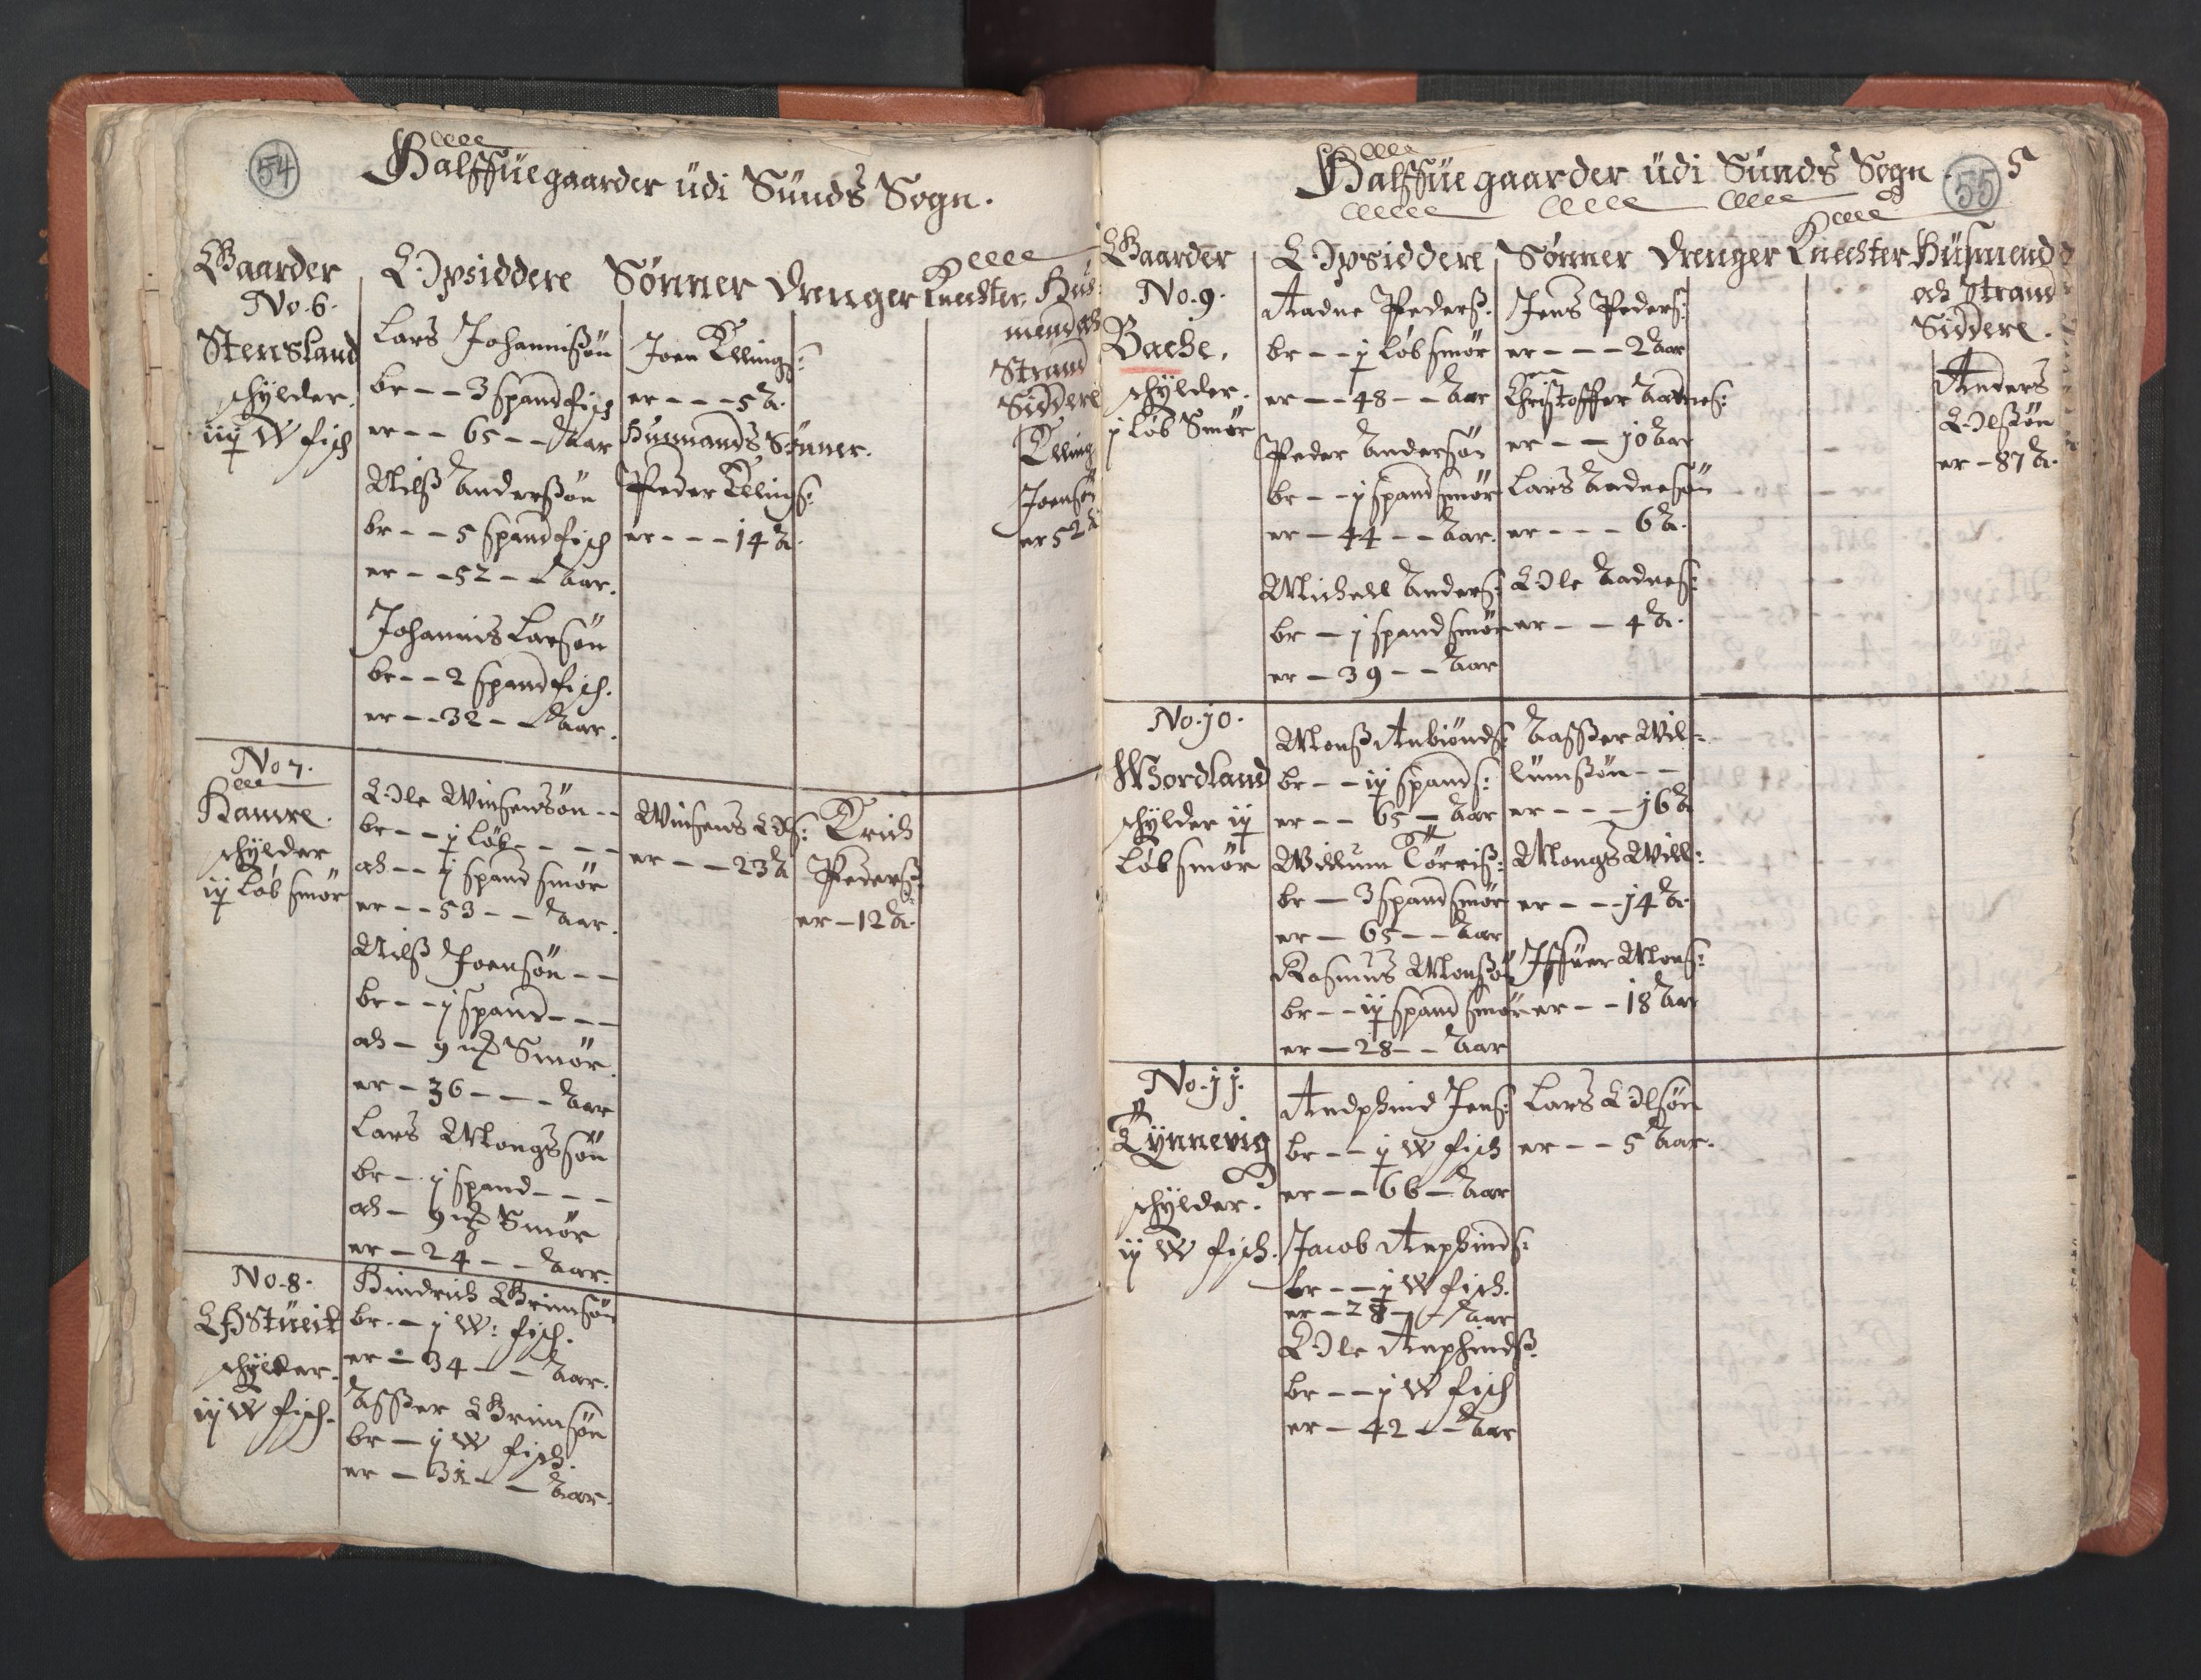 54
Halffüegaarder üdi Sünds Sogn.
Gaarder
Opsiddere
Sønner
Drenger
Knechter
Hüs:
mend och
Strand
Siddere
No. 6.
Stensland
schÿlder.
iij W fisch
Lars Johannißøn
br - - 3 spand fisch
er - - 65 - - Aar
Nilß Anderßøn
br - - 5 spand fisch
er - - 52 - - Aar.
Johannis Larsøn
br - - 2 spand fisch.
er - - 32 - - Aar.
Joen Ellings:
er - - - 5 A.
Huusmands Sønner.
Peder Ellings:
er - - - 14 A.
Elling
Joensøn
er 52 A
No 7.
Hamre.
schÿlder
ij Løb smør
Ole Winsensøn - -
br - - j Løb - - - -
och - - j spand smør
er - - 53 - - Aar.
Nilß Joensøn - -
br - - j spand - - -
och - 9 mk Smør.
er - 36 - - - Aar
Lars Mongssøn
br - j spand - - -
och - 9 mk Smør
er - 24 - - Aar.
Winsens Ols:
er - - - 23 A
Erich
Pederß:
er - 12 A.
No. 8.
Østüeit
schÿlder.
ij W fisch.
Hindrich Grimsøn
br - - j W: fisch.
er - 34 - - Aar.
Asßer Grimsøn
br - j W fisch.
er - 31 - - Aar.
Halffüegaarder üdi Sünds Sogn
55
5
Gaarder
Opsiddere
Sønner
Drenger
Knechter
Hüsmend
och Strand
Siddere.
No. 9.
Bache.
schÿlder.
j Løb Smør
Aadne Pederß.
br - - j Løb smør
er - - 48 - - Aar
Peder Andersøn
br - - j spand smør
er - 44 - - Aar.
Michell Anders:
br - j spand smør
er - 39 - - Aar
Jens Peders:
er - - - 2 Aar
Christoffer Aadnes:
er - - 10 Aar
Lars Andersøn
er - - - 6 A.
Ole Aadnes:
er - - 4 A.
Anders
Olsøn
er - 87 A.
No. 10.
Wordland
schÿlder ij
Løb smør
Monß Anbiønds:
br - - ij spand s:
er - - 65 - Aar
Willum Tørriß:
br - 3 spand smør
er - 65 - - Aar
Rasmus Monßøn
br - - ij spand smør
er - 28 - - Aar
Aasßer Wil-
lümßøn - -
er - - - 16 A
Mongs Will:
er - - - 14 A.
Iffüer Mons:
er - - 18 Aar
No. 11.
Tÿnnevig
schÿlder.
ij W fisch.
Andphind Jens:
br - - j W fisch
er - - 66 - Aar
Jacob Anphinds:
br - - j W fisch.
er - 28 - - Aar
Ole Anphindß.
br - - j W fisch
er - 42 - - Aar
Lars Olsøn
er - - 5 Aar.